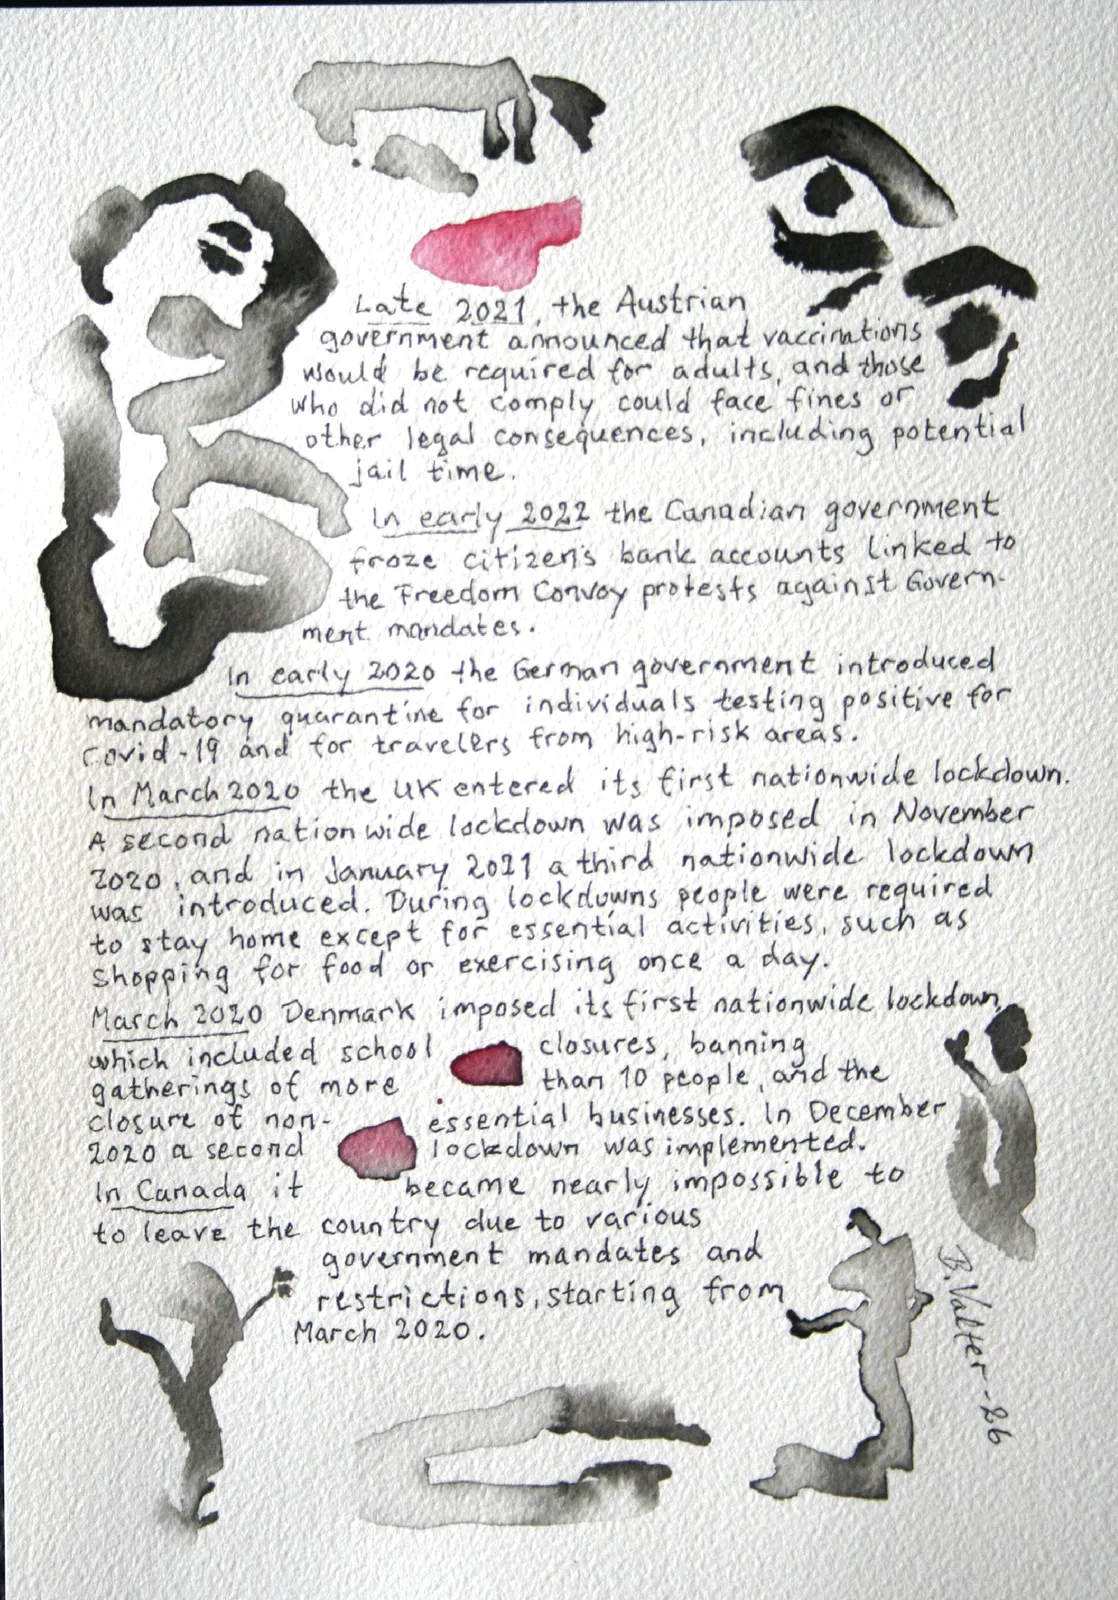 Late 2021, the Austrian
government announced that vaccinations
would be required for adults, and those
who did not comply could face fines or
other legal consequences, including potential
jail time.
In early 2022 the Canadian government
froze citizen's bank accounts linked to
the Freedom Convoy protests against Govern-
ment mandates.
In early 2020 the German government introduced
mandatory quarantine for individuals testing positive for
Covid-19 and for travelers from high-risk areas.
In March 2020 the UK entered its first nationwide lockdown.
A second nationwide lockdown was imposed in November
2020, and in January 2021 a third nationwide lockdown
was introduced. During lockdowns people were required
to stay home except for essential activities, such as
shopping for food or exercising once a day.
March 2020 Denmark imposed its first nationwide lockdown,
which included school closures, banning
gatherings of more than 10 people, and the
closure of non-essential businesses. In December
2020 a second lockdown was implemented.
In Canada it became nearly impossible to
to leave the country due to various
government mandates and
restrictions, starting from
March 2020.
B. Valter -26